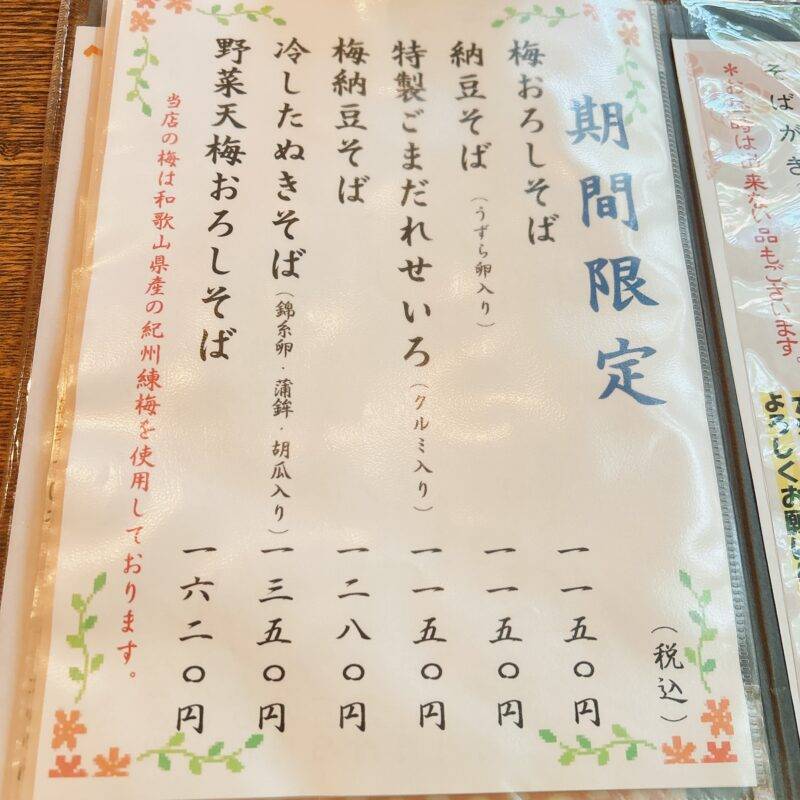 期間限定
(税込)
梅おろしそば
一一五〇円
納豆そば(うずら卵入り)
一一五〇円
特製ごまだれせいろ(クルミ入り)
一一五〇円
梅納豆そば
一二八〇円
冷したぬきそば(錦糸卵・蒲鉾・胡瓜入り)
一三五〇円
野菜天梅おろしそば
一六二〇円
当店の梅は和歌山県産の紀州練梅を使用しております。
そばがき
出来ない品もございます。
よろしくお願い